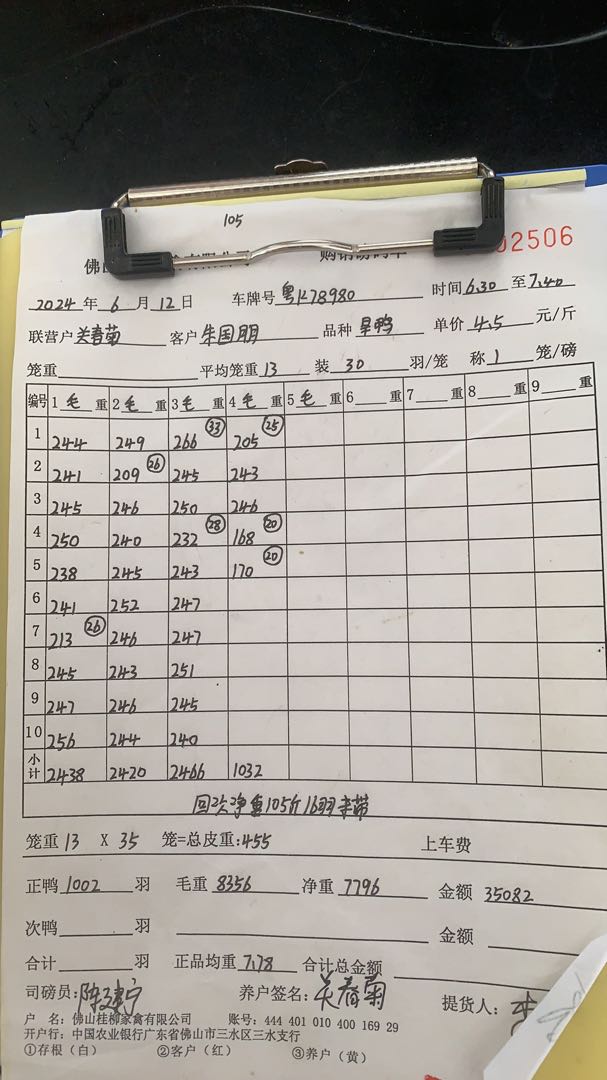 105
佛山
02506
2024年6月12日 车牌号粤K78980 时间6.30至7.40
联营户关春菊 客户朱国朋 品种旱鸭 单价4.5元/斤
笼重 平均笼重13 装30羽/笼 称1笼/磅
编号 1毛重 2毛重 3毛重 4毛重 5毛重 6重 7重 8重 9重
1 244 249 266 33 205 25
2 241 209 26 245 243
3 245 246 250 246
4 250 240 232 28 168 20
5 238 245 243 170 20
6 241 252 247
7 213 26 246 247
8 245 243 251
9 247 246 245
10 256 244 240
小计 2438 2420 2466 1032
回次净重105斤16羽
笼重13 X 35 笼=总皮重:455 上车费
正鸭1002羽 毛重8356 净重7796 金额35082
次鸭 羽 金额
合计 羽 正品均重7.78 合计总金额
司磅员: 养户签名:关春菊 提货人:
户 名:佛山桂柳家禽有限公司 账号:444 401 010 400 169 29
开户行:中国农业银行广东省佛山市三水区三水支行
①存根(白) ②客户(红) ③养户(黄)